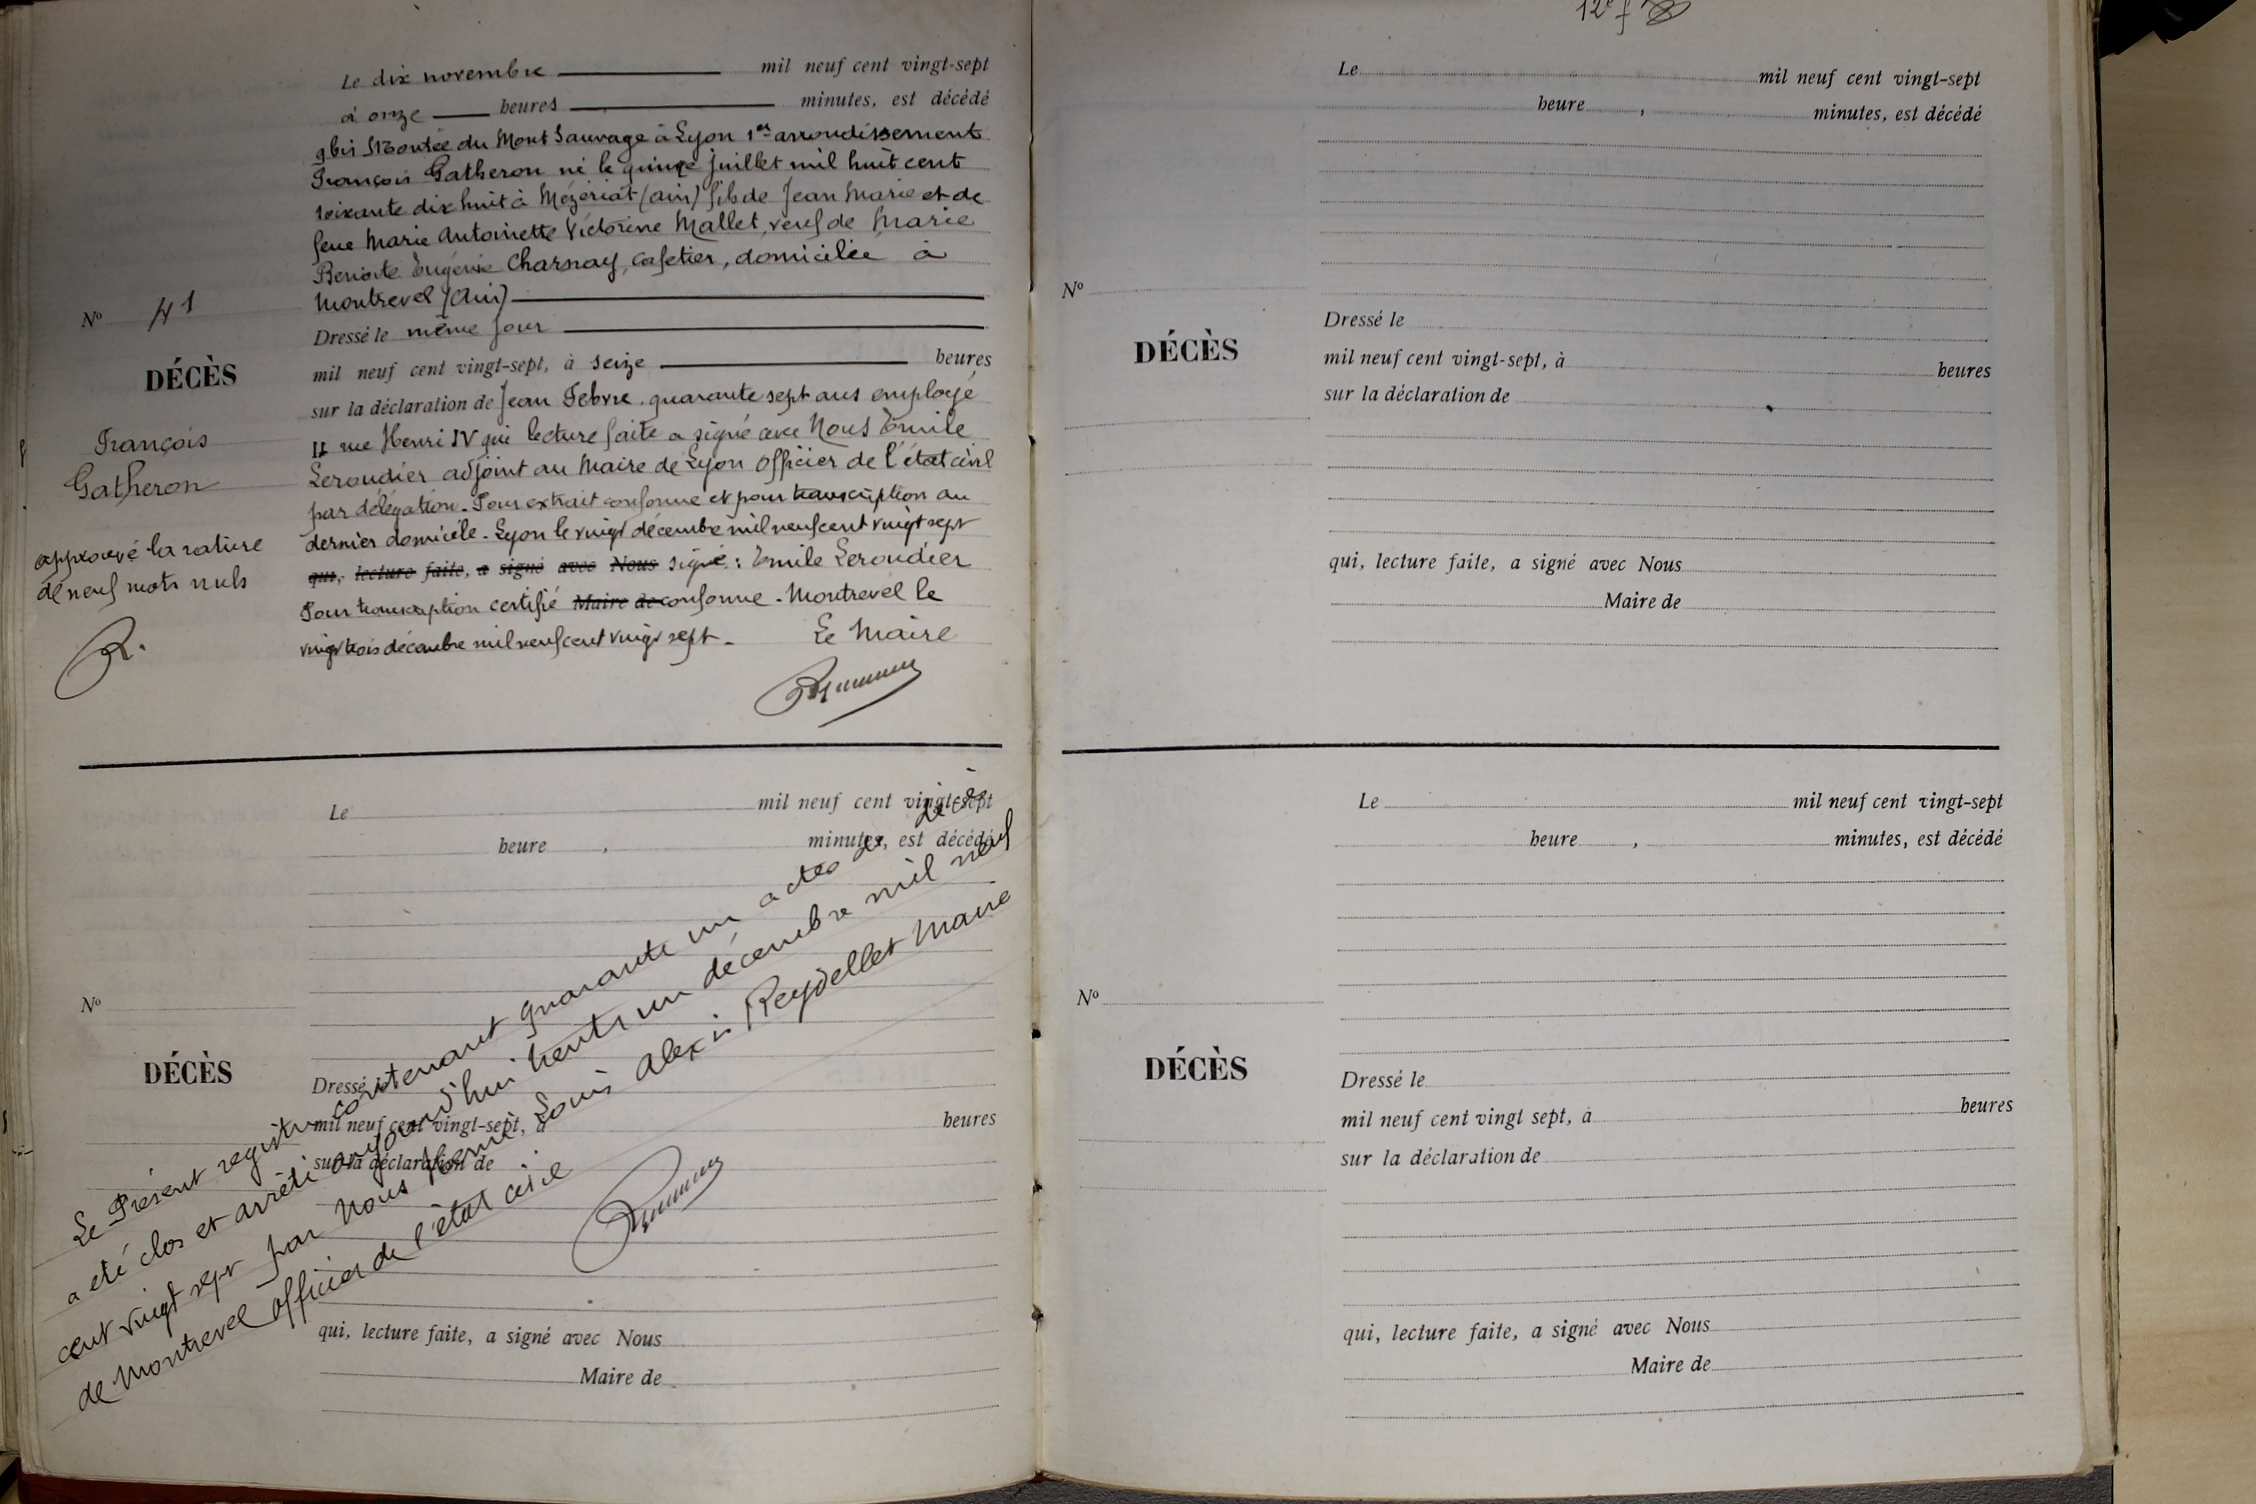 Le dix novembre mil neuf cent vingt-sept
à onze heures minutes, est décédé
9 bis Montée du Mont Sauvage à Lyon 1er arrondissement
François Gatheron né le quinze juillet mil huit cent
soixante dix huit à Mézériat (ain) fils de Jean Marie et de
feue Marie Antoinette Victorine Mallet, veuf de Marie
Benoite Eugénie Charnay, cafetier, domicilié à
Montrevel (Ain)
Nº 41
Dressé le même jour
DÉCÈS
mil neuf cent vingt-sept, à seize heures
sur la déclaration de Jean Febvre. quarante sept ans employé
François
rue Henri IV qui lecture faite a signé avec Nous Emile
Gatheron
Leroudier adjoint au Maire de Lyon officier de l'état civil
par délégation. Pour extrait conforme et pour transcription au
approuvé la rature
dernier domicile. Lyon le vingt décembre mil neuf cent vingt sept
de neuf mots nuls
qui, lecture faite, a signé avec Nous signé : Emile Leroudier
R.
Pour transcription certifié Maire de conforme. Montrevel le
vingt trois décembre mil neuf cent vingt sept. Le Maire
Le mil neuf cent vingt-sept
heure , minutes, est décédé
Nº
DÉCÈS
Dressé le
mil neuf cent vingt-sept, à heures
sur la déclaration de
qui, lecture faite, a signé avec Nous
Maire de
Le Présent registre contenant quarante un actes de décès
a été clos et arrêté aujourd'hui trente un décembre mil neuf
cent vingt sept par Nous Louis Alexis Reydellet Maire
de Montrevel officier de l'état civil
12e f
Le mil neuf cent vingt-sept
heure , minutes, est décédé
Nº
Dressé le
DÉCÈS
mil neuf cent vingt-sept, à heures
sur la déclaration de
qui, lecture faite, a signé avec Nous
Maire de
Le mil neuf cent vingt-sept
heure , minutes, est décédé
Nº
DÉCÈS
Dressé le
mil neuf cent vingt sept, à heures
sur la déclaration de
qui, lecture faite, a signé avec Nous
Maire de